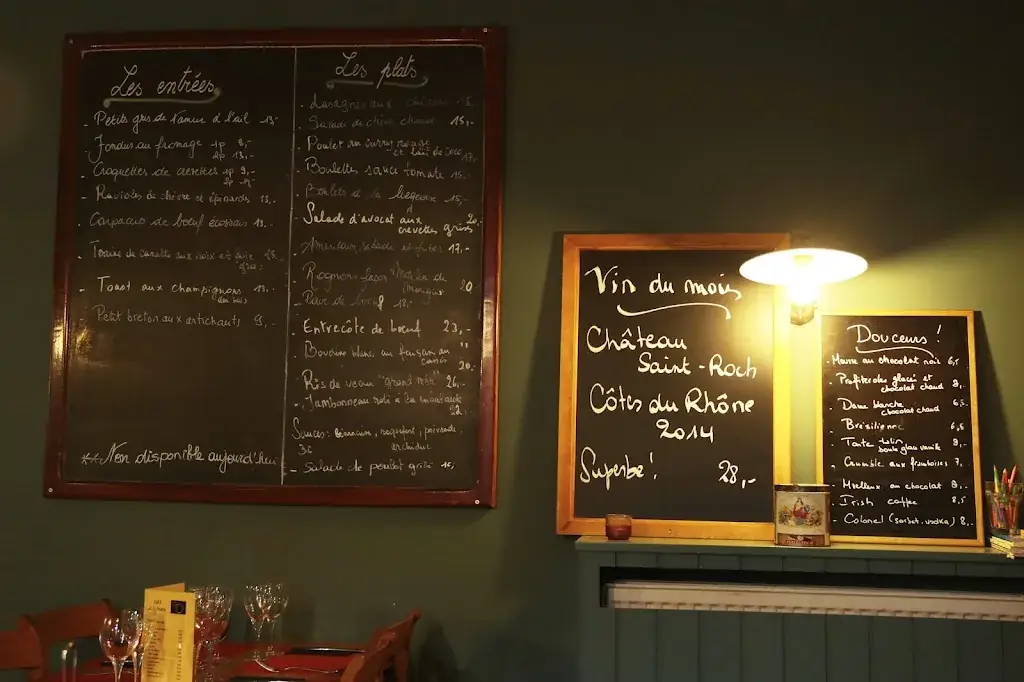 Les entrées
- Petits gris de Namur à l'ail 13,-
- Fondus au fromage 1p 8,-
2p 13,-
- Croquettes de crevettes 1p 9,-
2p
- Ravioles de chèvre et épinards 13,-
- Carpaccio de boeuf écossais 13,-
- Terrine de canette aux noix et foie
gras
- Toast aux champignons 13,-
des bois
- Petit breton aux artichauts 9,-
** Non disponible aujourd'hui
Les plats
- Lasagnes aux
- Salade de chèvre chaud 15,-
- Poulet au curry rouge
et lait de coco 17,-
- Boulettes sauce tomate 15,-
- Boulets à la liégeoise 15,-
- Salade d'avocat aux 20,-
crevettes grises
- Américain, salade et frites 17,-
- Rognons façon
20
- Pavé de boeuf 18,-
- Entrecôte de boeuf 23,-
- Boudin blanc au
20,-
- Ris de veau "grand-mère" 26,-
- Jambonneau rôti à la moutarde
22,-
Sauces: béarnaise, roquefort, poivrade,
3€ archiduc
- Salade de poulet grillé 15,-
Vin du mois
Château
Saint-Roch
Côtes du Rhône
2014
Superbe! 28,-
Douceurs!
- Mousse au chocolat noir 6,5
- Profiteroles glacé et
chocolat chaud 8,-
- Dame blanche 6,5
chocolat chaud
- Brésilienne 6,5
- Tarte tatin 8,-
boule glace vanille
- Crumble aux framboises 7,
- Moelleux au chocolat 8,-
- Irish coffee 8,5
- Colonel (sorbet, vodka) 8,-